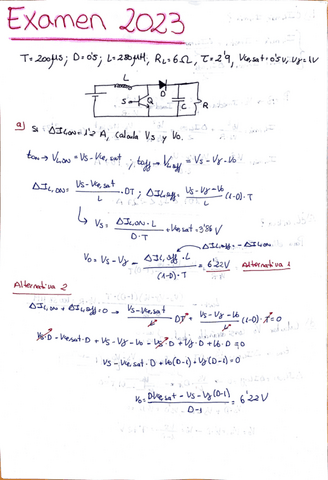 Examen 2023
T=200μs; D=0'5; L=280μH, RL=6Ω, Vce,sat=0'5V, Vγ=1V
L
D
S
Q
C
R
a) Si ΔIL,ON=1'2 A, calcula Vs y Vo.
ton → VL,ON = Vs - Vce,sat ; toff → VL,off = Vs - Vγ - Vo
ΔIL,ON = (Vs - Vce,sat)/L · DT ; ΔIL,off = (Vs - Vγ - Vo)/L (1-D)·T
↳ Vs = (ΔIL,ON · L)/(D·T) + Vce,sat = 3'86 V
ΔIL,off = -ΔIL,ON
Vo = Vs - Vγ - (ΔIL,off · L)/((1-D)·T) = 6'22V Alternativa 1
Alternativa 2
ΔIL,ON + ΔIL,off = 0 → (Vs - Vce,sat)/L · DT + (Vs - Vγ - Vo)/L (1-D)·T = 0
Vs·D - Vce,sat·D + Vs - Vγ - Vo - Vs·D + Vγ·D + Vo·D = 0
Vs - Vce,sat·D + Vo(D-1) + Vγ(D-1) = 0
Vo = (DVce,sat - Vs - Vγ(D-1))/(D-1) = 6'22V